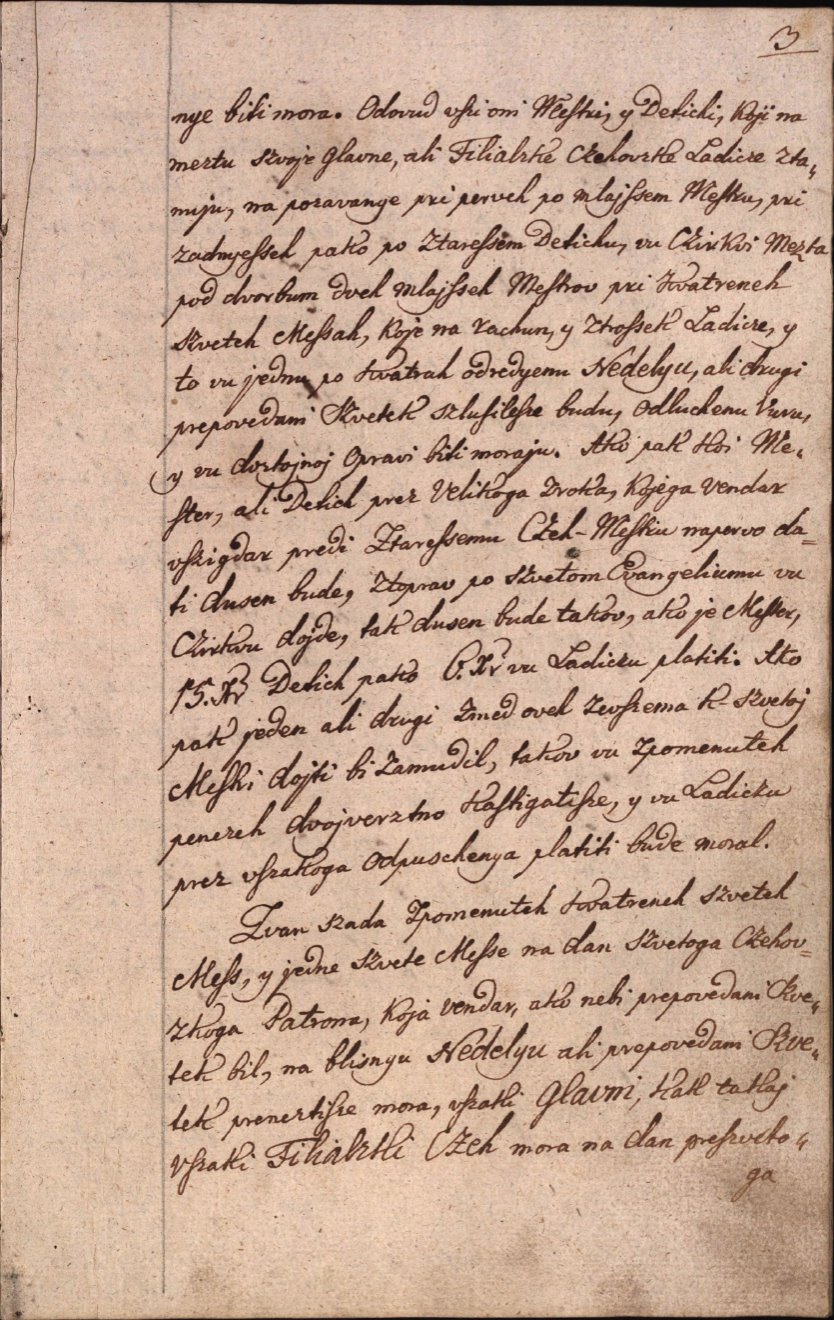 3
nye biti mora. Odovud vszi oni Mestri, y Detichi, koji na
mesztu szvoje Glavne, ali Filialzke Czehovzke Ladicze zta„
nuju, na pozavanye pri perveh po mlajssem Mestru, pri
zadnyesseh pako po Ztaressem Detichu, vu Czirkvi Mezta
pod dvorbum dveh mlajsseh Mestrov pri kvatreneh
szveteh Messah, koje na rachun, y ztrossek Ladicze, y
to vu jednu po kvatrah odredyenu Nedelyu, ali drugi
prepovedani Szvetek szlusilesze budu, odluchenu Vuru,
y vu doztojnoj opravi biti moraju. Ako pak koi Me„
ster, ali Detich prez Velikoga zroka, kojega vendar
vszigdar predi Ztaressemu Czeh-Mestru napervo da=
ti dusen bude, ztoprav po szvetom Evangeliumu vu
Czirkvu dojde, tak dusen bude takov, ako je Mester,
15. Xr Detich pako 6. Xr vu Ladiczu platiti. Ako
pak jeden ali drugi zmed oveh zevszema k-szvetoj
Messi dojti bi zamudil, takov vu zpomenuteh
penezeh dvojverztno kastigatisze, y vu Ladiczu
prez vszakoga odpuschenya platiti bude moral.
Zvan szada zpomenuteh kvatreneh szveteh
Mess, y jedne szvete Messe na dan szvetoga Czehov=
zkoga Patrona, koja vendar, ako nebi prepovedani Szve„
tek bil, na blisnyu Nedelyu ali prepovedani Szve„
tek preneztisze mora, vszaki Glavni, kak takaj
vszaki Filialzki Czeh mora na dan preszveto„
ga